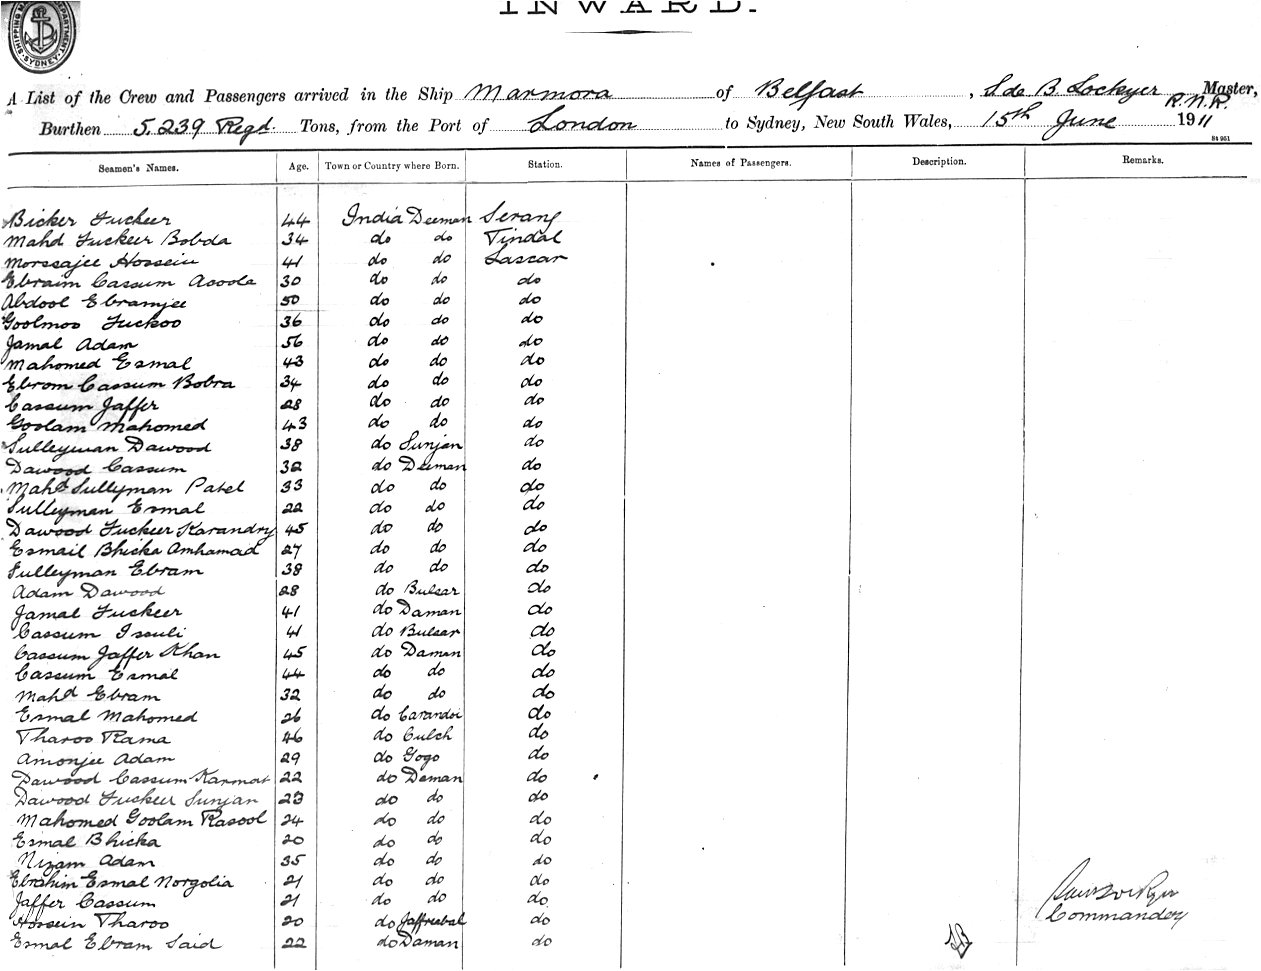 INWARD.
SHIPPING DEPARTMENT SYDNEY
A List of the Crew and Passengers arrived in the Ship Marmora of Belfast, S de B Lockyer Master, R.N.R.
Burthen 5,239 Regd. Tons, from the Port of London to Sydney, New South Wales, 15th June 1911
St 951
Seamen's Names. Age. Town or Country where Born. Station. Names of Passengers. Description. Remarks.
Bicker Fuckeer 44 India Deeman Serang
Mahd Fuckeer Bobda 34 do do Tindal
Morssajee Hossein 41 do do Lascar
Ebraim Cassum Acoola 30 do do do
Abdool Ebramjee 50 do do do
Goolmoo Fuckoo 36 do do do
Jamal Adam 56 do do do
Mahomed Esmal 43 do do do
Ebrom Cassum Bobra 34 do do do
Cassum Jaffer 28 do do do
Goolam Mahomed 43 do do do
Sulleyman Dawood 38 do Sunjan do
Dawood Cassum 32 do Deeman do
Mahd Sullyman Patel 33 do do do
Sulleyman Esmal 22 do do do
Dawood Fuckeer Karandry 45 do do do
Esmail Bhicka Amhamad 27 do do do
Sulleyman Ebram 38 do do do
Adam Dawood 28 do Bulsar do
Jamal Fuckeer 41 do Daman do
Cassum Issuli 41 do Bulsar do
Cassum Jaffer Khan 45 do Daman do
Cassum Esmal 44 do do do
Mahd Ebram 32 do do do
Esmal Mahomed 26 do Carandoi do
Tharoo Rama 46 do Culch do
Amonjee Adam 29 do Gogo do
Dawood Cassum Karmat 22 do Deman do
Dawood Fuckeer Sunjan 23 do do do
Mahomed Goolam Rasool 24 do do do
Esmal Bhicka 20 do do do
Nizam Adam 35 do do do
Ebrahim Esmal Norgolia 21 do do do
Jaffer Cassum 21 do do do
Hossein Tharoo 20 do Jaffrabal do
Commander
Esmal Ebram Said 22 do Daman do